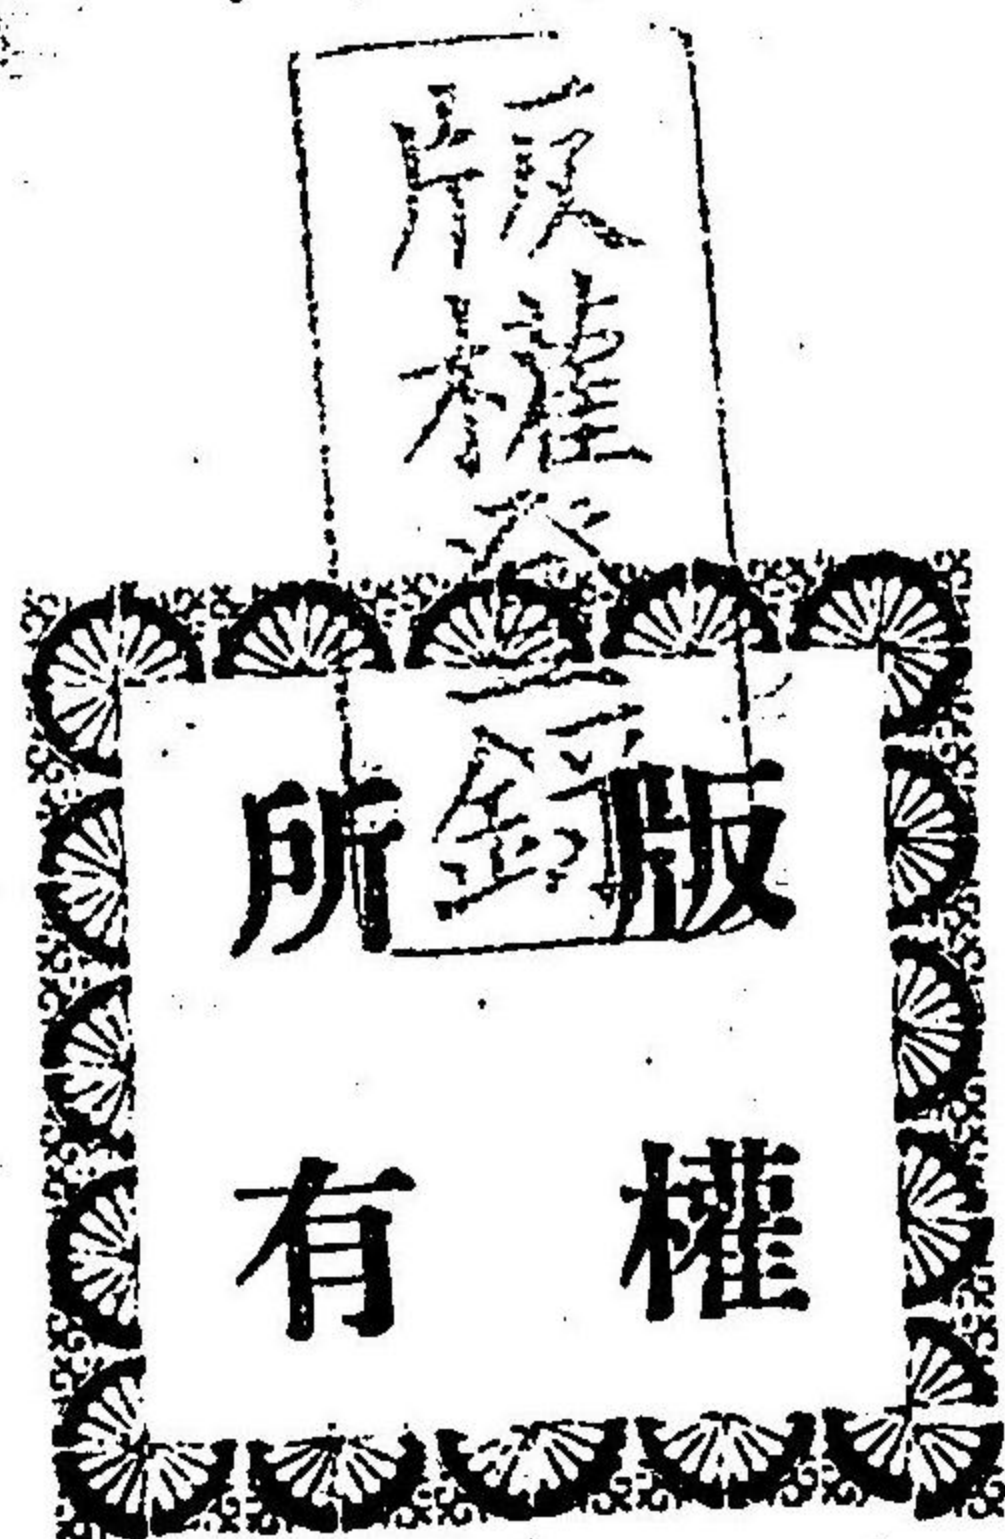 版權登錄
版權
所有